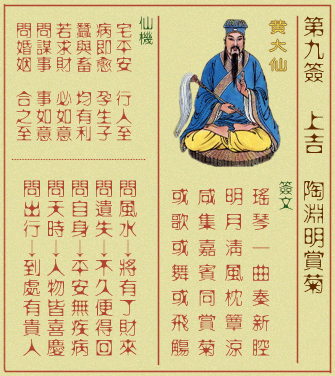 第九簽 上吉 陶淵明賞菊
黃大仙
簽文
瑤琴一曲奏新腔
明月清風枕簟涼
咸集嘉賓同賞菊
或歌或舞或飛觴
仙機
宅平安 行人至
病即愈 孕生子
蠶與畜 均有利
若求財 必如意
問謀事 事如意
問婚姻 合之至
問風水→將有了財來
問遺失→不久便得回
問自身→平安無疾病
問天時→人物皆喜慶
問出行→到處有貴人